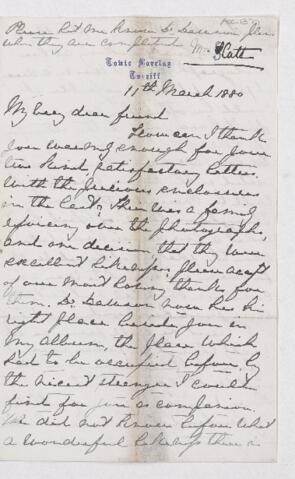 Please let me know Dr Dawson
when they are completed Mr Hatt
Towie Barclay
Turriff
11th March 1880
My very dear friend
How can I thank
you warmly enough for your
two kind, satisfactory letters.
With the precious enclosures
in the last. There was a family
rejoicing over the Photographs,
and one decision, that they were
excellent likenesses. Please accept
of our most loving thanks for
them. Dr Dawson now has his
right place beside you in
My Album, the place which
had to be occupied before by
the nicest stranger I could
find for you as companion.
We did not know before what
a wonderful likeness there is